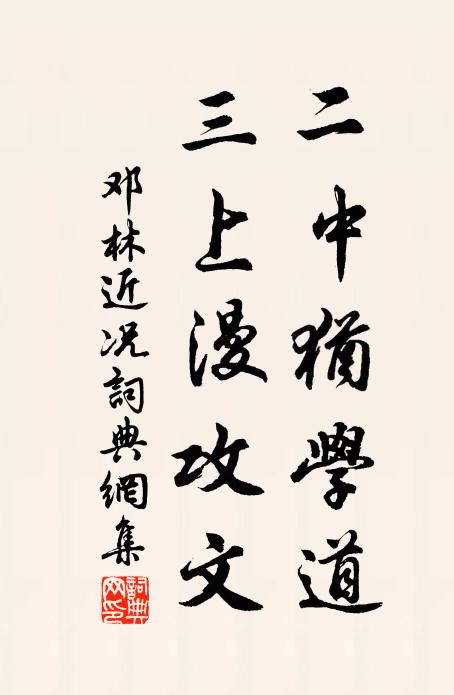 二中猶學道
三上漫攻文
邓林近况詞典網集
詞典
网印